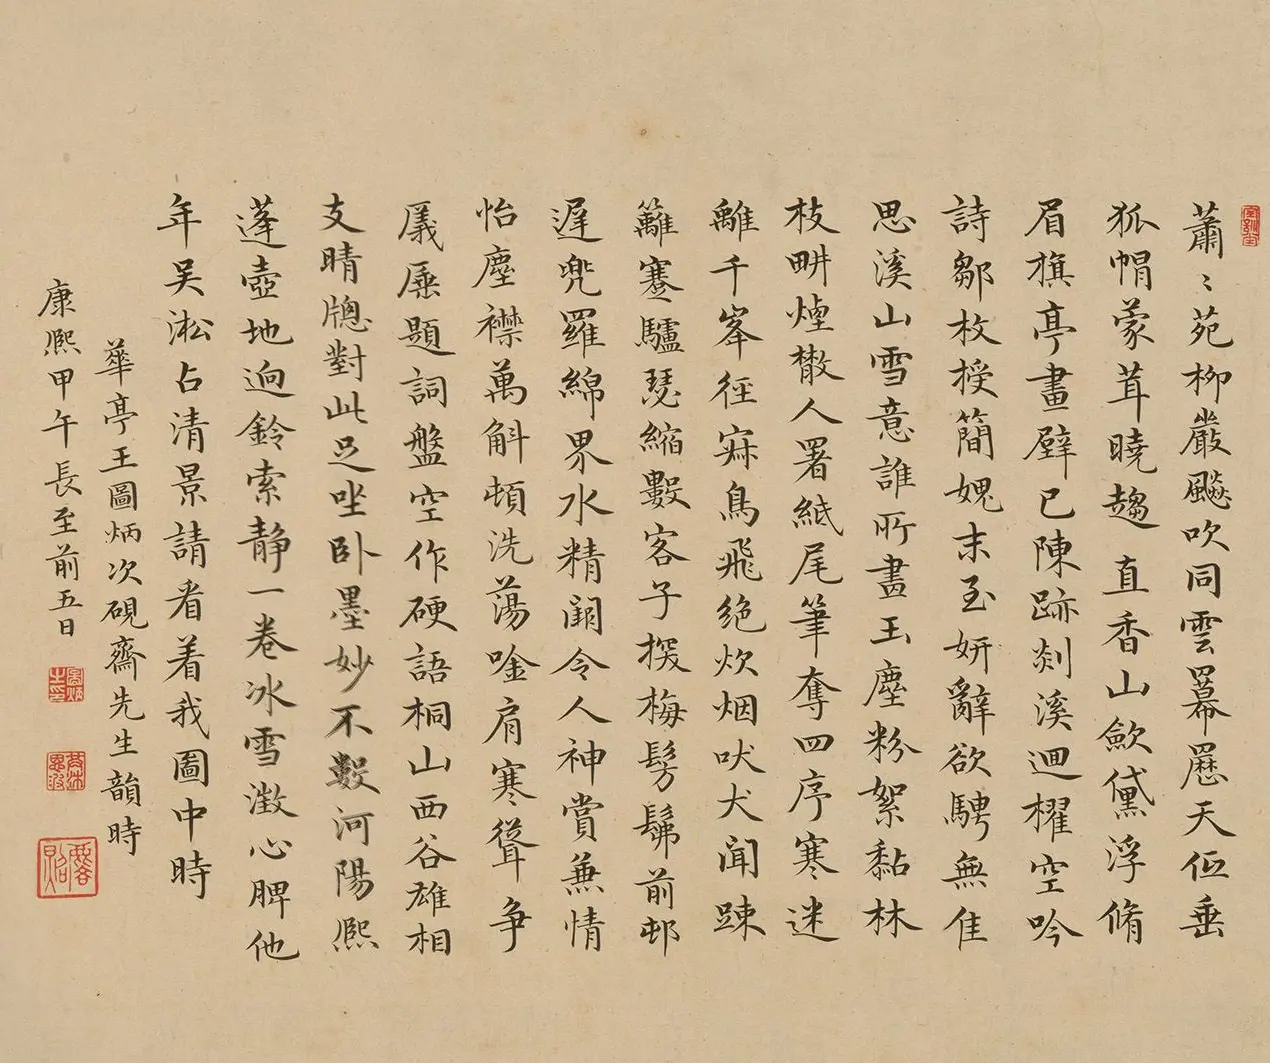 蕭〻苑柳嚴飈吹同雲羃𠪱天低垂
狐帽蒙茸曉趨直香山歛黛浮脩
眉旗亭畫壁已陳跡剡溪迴櫂空吟
詩鄒枚授簡媿末至妍辭欲騁無佳
思溪山雪意誰所畫玉塵粉絮黏林
枝畊煙散人署紙尾筆奪四序寒迷
離千峯徑寂鳥飛絕炊烟吠犬闻踈
籬蹇驢瑟縮數客子探梅髣髴前邨
遲兜羅綿界水精闕令人神賞兼情
怡塵襟萬斛頓洗蕩唫肩寒聳争
羲屢題詞盤空作硬語桐山西谷雄相
支晴牕對此足坐卧墨妙不數河陽熈
蓬壺地迥鈴索静一卷冰雪澂心脾他
年吴淞占清景請看着我圖中時
華亭王圖炳次硯齋先生韻時
康熈甲午長至前五日